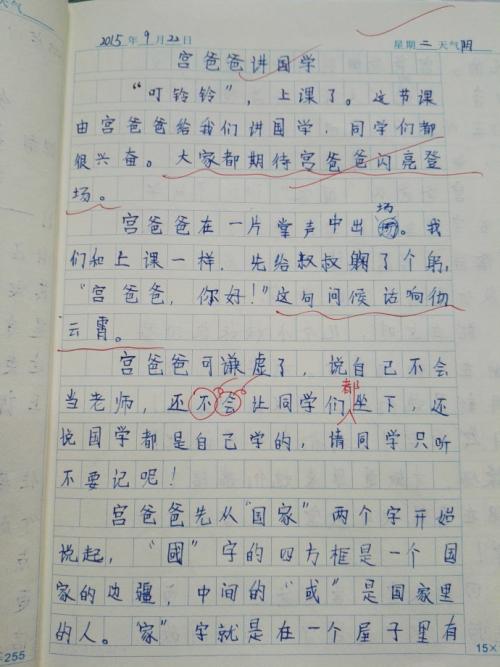 天气
2015年9月22日 星期二 天气阴
宫爸爸讲国学
“叮铃铃”，上课了。这节课
由宫爸爸给我们讲国学，同学们都
很兴奋。大家都期待宫爸爸闪亮登
场。
场
宫爸爸在一片掌声中出。我
们和上课一样，先给叔叔鞠了个躬，
“宫爸爸，你好！”这句问候话响彻
云霄。
宫爸爸可谦虚了，说自己不会
都
当老师，还不会让同学们坐下，还
说国学都是自己学的，请同学只听
不要记呢！
宫爸爸先从“国家”两个字开始
说起，“國”字的四方框是一个国
家的边疆，中间的“或”是国家里
的人。“家”字就是在一个屋子里有
255
15×